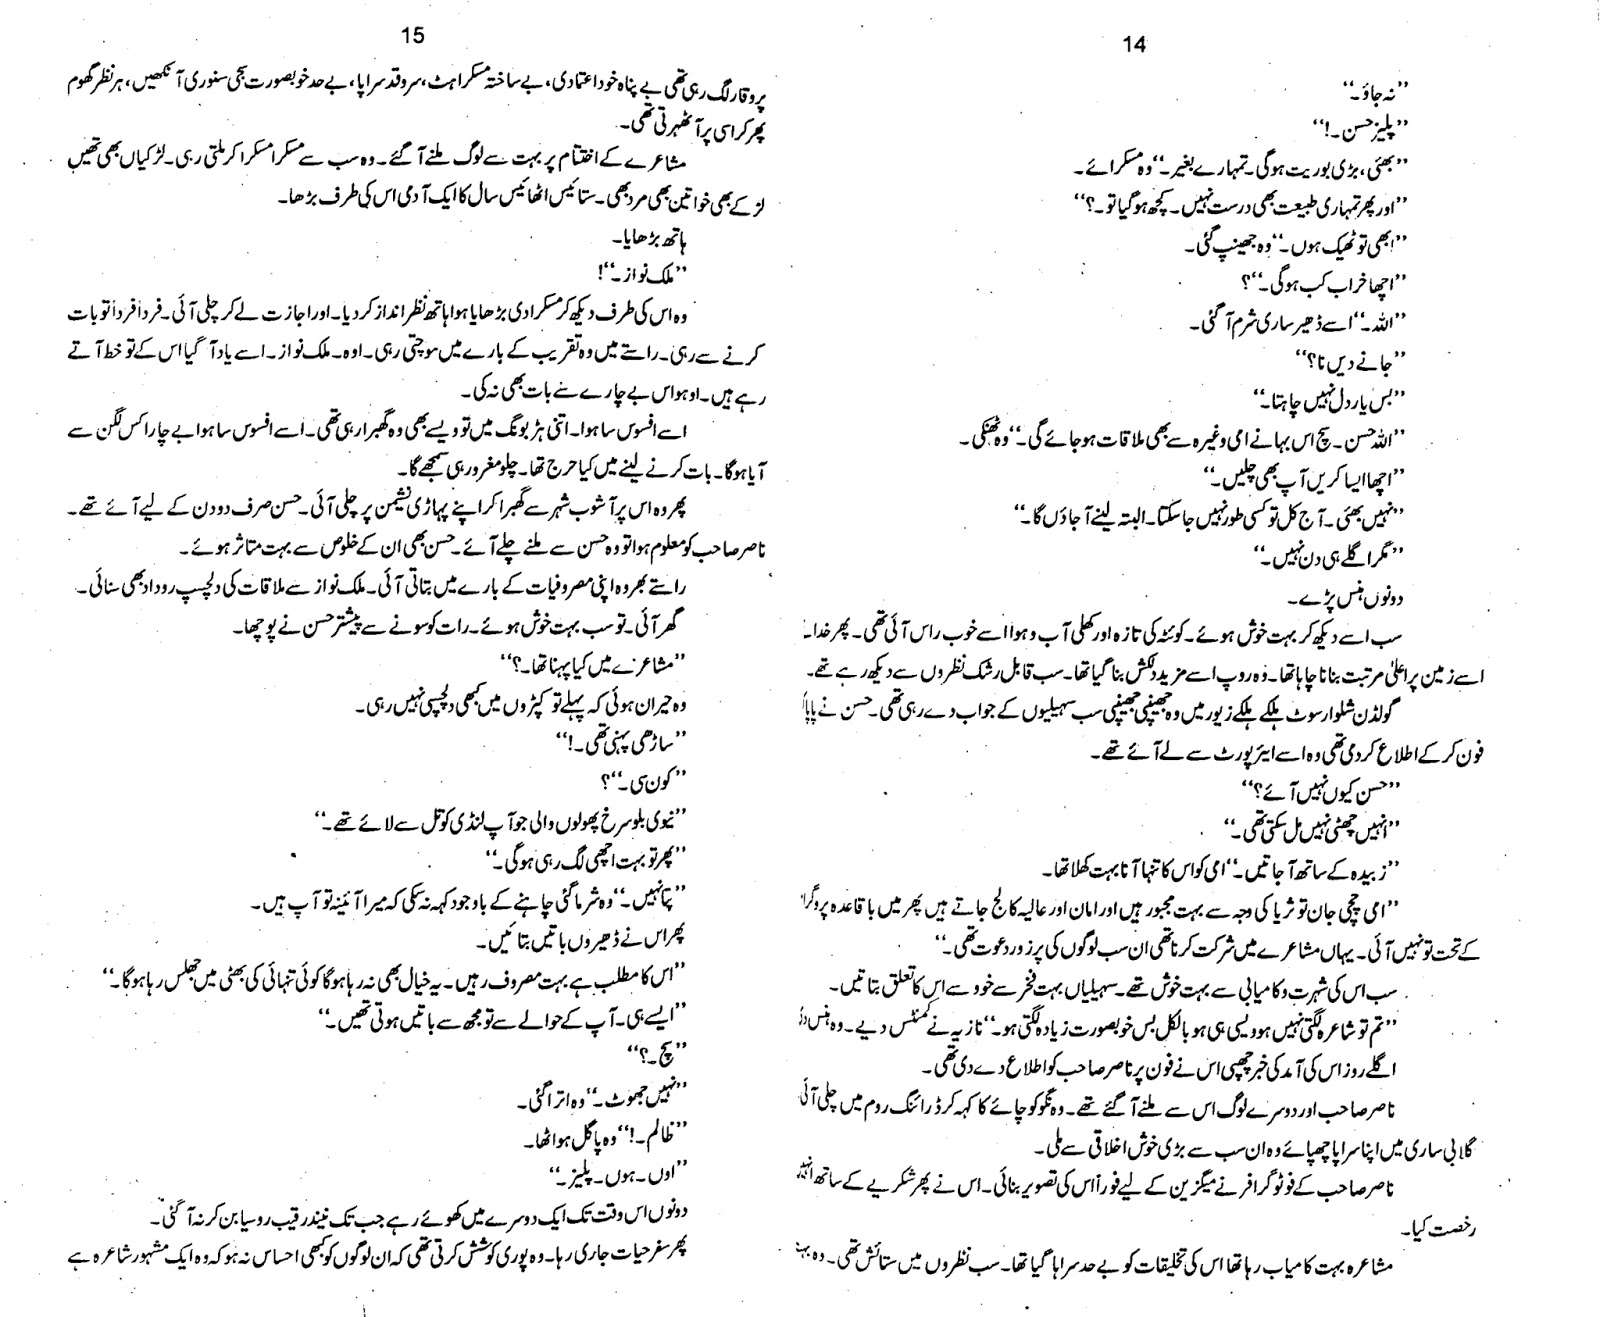 14
”نہ جاؤ۔“
”پلیز حسن۔!“
”بھئی، بڑی بوریت ہوگی۔ تمہارے بغیر۔“ وہ مسکرائے۔
”اور پھر تمہاری طبیعت بھی درست نہیں۔ کچھ ہو گیا تو۔؟“
”ابھی تو ٹھیک ہوں۔“ وہ جھینپ گئی۔
”اچھا خراب کب ہوگی۔“؟
”اللہ۔“ اسے ڈھیر ساری شرم آ گئی۔
”جانے دیں نا؟“
”بس یار دل نہیں چاہتا۔“
”اللہ حسن۔ سچ اس بہانے امی وغیرہ سے بھی ملاقات ہو جائے گی۔“ وہ ٹھنکی۔
”اچھا ایسا کریں آپ بھی چلیں۔“
”نہیں بھئی۔ آج کل تو کسی طور نہیں جا سکتا۔ البتہ لینے آ جاؤں گا۔“
”مگر اگلے ہی دن نہیں۔“
دونوں ہنس پڑے۔
سب اسے دیکھ کر بہت خوش ہوئے۔ کوئٹہ کی تازہ اور کھلی آب و ہوا اسے خوب راس آئی تھی۔ پھر خدا
اسے زمین پر اعلیٰ مرتبت بنانا چاہا تھا۔ وہ روپ اسے مزید دلکش بنا گیا تھا۔ سب قابل رشک نظروں سے دیکھ رہے تھے۔
گولڈن شلوار سوٹ ہلکے ہلکے زیور میں وہ جھینپی جھینپی سب سہیلیوں کے جواب دے رہی تھی۔ حسن نے پاپا
فون کر کے اطلاع کر دی تھی وہ اسے ایئرپورٹ سے لے آئے تھے۔
”حسن کیوں نہیں آئے؟“
”انہیں چھٹی نہیں مل سکتی تھی۔“
”زبیدہ کے ساتھ آ جاتیں۔“ امی کو اس کا تنہا آنا بہت کھلا تھا۔
”امی چچی جان تو ثریا کی وجہ سے بہت مجبور ہیں اور امان اور عالیہ کالج جاتے ہیں پھر میں باقاعدہ پروگرا
کے تحت تو نہیں آئی۔ یہاں مشاعرے میں شرکت کرنا تھی ان سب لوگوں کی پرزور دعوت تھی۔“
سب اس کی شہرت و کامیابی سے بہت خوش تھے۔ سہیلیاں بہت فخر سے خود سے اس کا تعلق بتاتیں۔
”تم تو شاعرہ لگتی نہیں ہو ویسی ہی ہو بالکل بس خوبصورت زیادہ لگتی ہو۔“ نازیہ نے کمنٹس دیے۔ وہ ہنس
اگلے روز اس کی آمد کی خبر چھپی اس نے فون پر ناصر صاحب کو اطلاع دے دی تھی۔
ناصر صاحب اور دوسرے لوگ اس سے ملنے آ گئے تھے۔ وہ نگو کو چائے کا کہہ کر ڈرائنگ روم میں چلی آئی
گلابی ساری میں اپنا سراپا چھپائے وہ ان سب سے بڑی خوش اخلاقی سے ملی۔
ناصر صاحب کے فوٹوگرافر نے میگزین کے لیے فوراً اس کی تصویر بنائی۔ اس نے پھر شکریے کے ساتھ
رخصت کیا۔
مشاعرہ بہت کامیاب رہا تھا اس کی تخلیقات کو بے حد سراہا گیا تھا۔ سب نظروں میں ستائش تھی۔ وہ
15
پروقار لگ رہی تھی بے پناہ خود اعتمادی، بے ساختہ مسکراہٹ، سرو قد سراپا، بے حد خوبصورت سجی سنوری آنکھیں، ہر نظر گھوم
پھر کر اسی پر آ ٹھہرتی تھی۔
مشاعرے کے اختتام پر بہت سے لوگ ملنے آ گئے۔ وہ سب سے مسکرا مسکرا کر ملتی رہی۔ لڑکیاں بھی تھیں
لڑکے بھی خواتین بھی مرد بھی۔ ستائیس اٹھائیس سال کا ایک آدمی اس کی طرف بڑھا۔
ہاتھ بڑھایا۔
”ملک نواز۔“!
وہ اس کی طرف دیکھ کر مسکرا دی بڑھایا ہوا ہاتھ نظر انداز کر دیا۔ اور اجازت لے کر چلی آئی۔ فرداً فرداً تو بات
کرنے سے رہی۔ راستے میں وہ تقریب کے بارے میں سوچتی رہی۔ اوہ۔ ملک نواز۔ اسے یاد آ گیا اس کے تو خط آتے
رہے ہیں۔ اوہو اس بے چارے سے بات بھی نہ کی۔
اسے افسوس سا ہوا۔ اتنی ہڑبونگ میں تو ویسے بھی وہ گھبرا رہی تھی۔ اسے افسوس سا ہوا بے چارا کس لگن سے
آیا ہوگا۔ بات کرنے لینے میں کیا حرج تھا۔ چلو مغرور ہی سمجھے گا۔
پھر وہ اس پرآشوب شہر سے گھبرا کر اپنے پہاڑی نشیمن پر چلی آئی۔ حسن صرف دو دن کے لیے آئے تھے۔
ناصر صاحب کو معلوم ہوا تو وہ حسن سے ملنے چلے آئے۔ حسن بھی ان کے خلوص سے بہت متاثر ہوئے۔
راستے بھر وہ اپنی مصروفیات کے بارے میں بتاتی آئی۔ ملک نواز سے ملاقات کی دلچسپ روداد بھی سنائی۔
گھر آئی۔ تو سب بہت خوش ہوئے۔ رات کو سونے سے پیشتر حسن نے پوچھا۔
”مشاعرے میں کیا پہنا تھا۔؟“
وہ حیران ہوئی کہ پہلے تو کپڑوں میں کبھی دلچسپی نہیں رہی۔
”ساڑھی پہنی تھی۔!“
”کون سی۔“؟
”نیوی بلو سرخ پھولوں والی جو آپ لنڈی کوتل سے لائے تھے۔“
”پھر تو بہت اچھی لگ رہی ہوگی۔“
”پتا نہیں۔“ وہ شرما گئی چاہنے کے باوجود کہہ نہ سکی کہ میرا آئینہ تو آپ ہیں۔
پھر اس نے ڈھیروں باتیں بتائیں۔
”اس کا مطلب ہے بہت مصروف رہیں۔ یہ خیال بھی نہ رہا ہوگا کوئی تنہائی کی بھٹی میں جھلس رہا ہوگا۔“
”ایسے ہی۔ آپ کے حوالے سے تو مجھ سے باتیں ہوتی تھیں۔“
”سچ۔؟“
”نہیں جھوٹ۔“ وہ اترا گئی۔
”ظالم۔!“ وہ پاگل ہو اٹھا۔
”اوں۔ ہوں۔ پلیز۔“
دونوں اس وقت تک ایک دوسرے میں کھوئے رہے جب تک نیند رقیب روسیا بن کر نہ آ گئی۔
پھر سفر حیات جاری رہا۔ وہ پوری کوشش کرتی تھی کہ ان لوگوں کو کبھی احساس نہ ہو کہ وہ ایک مشہور شاعرہ ہے